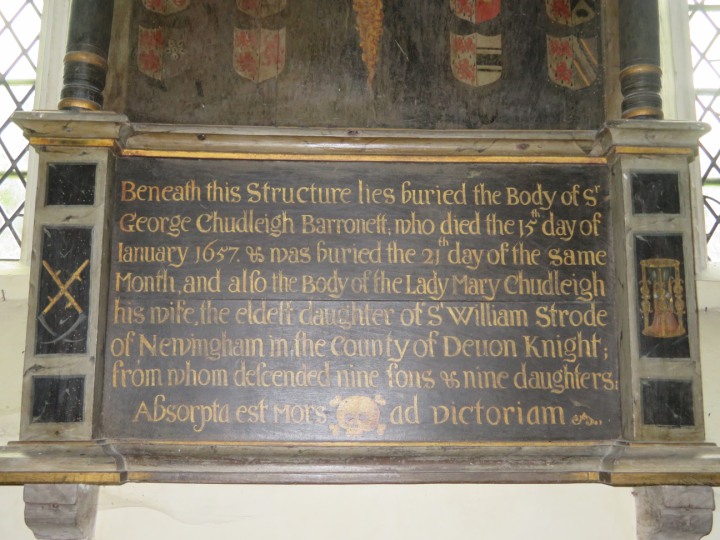 Beneath this Structure lies buried the Body of Sr
George Chudleigh Barronett, who died the 15th day of
Ianuary 1657. & was buried the 21th day of the same
Month, and also the Body of the Lady Mary Chudleigh
his wife, the eldest daughter of Sr William Strode
of Newingham in the County of Deuon Knight;
from whom descended nine sons & nine daughters:
Absorpta est Mors ad victoriam